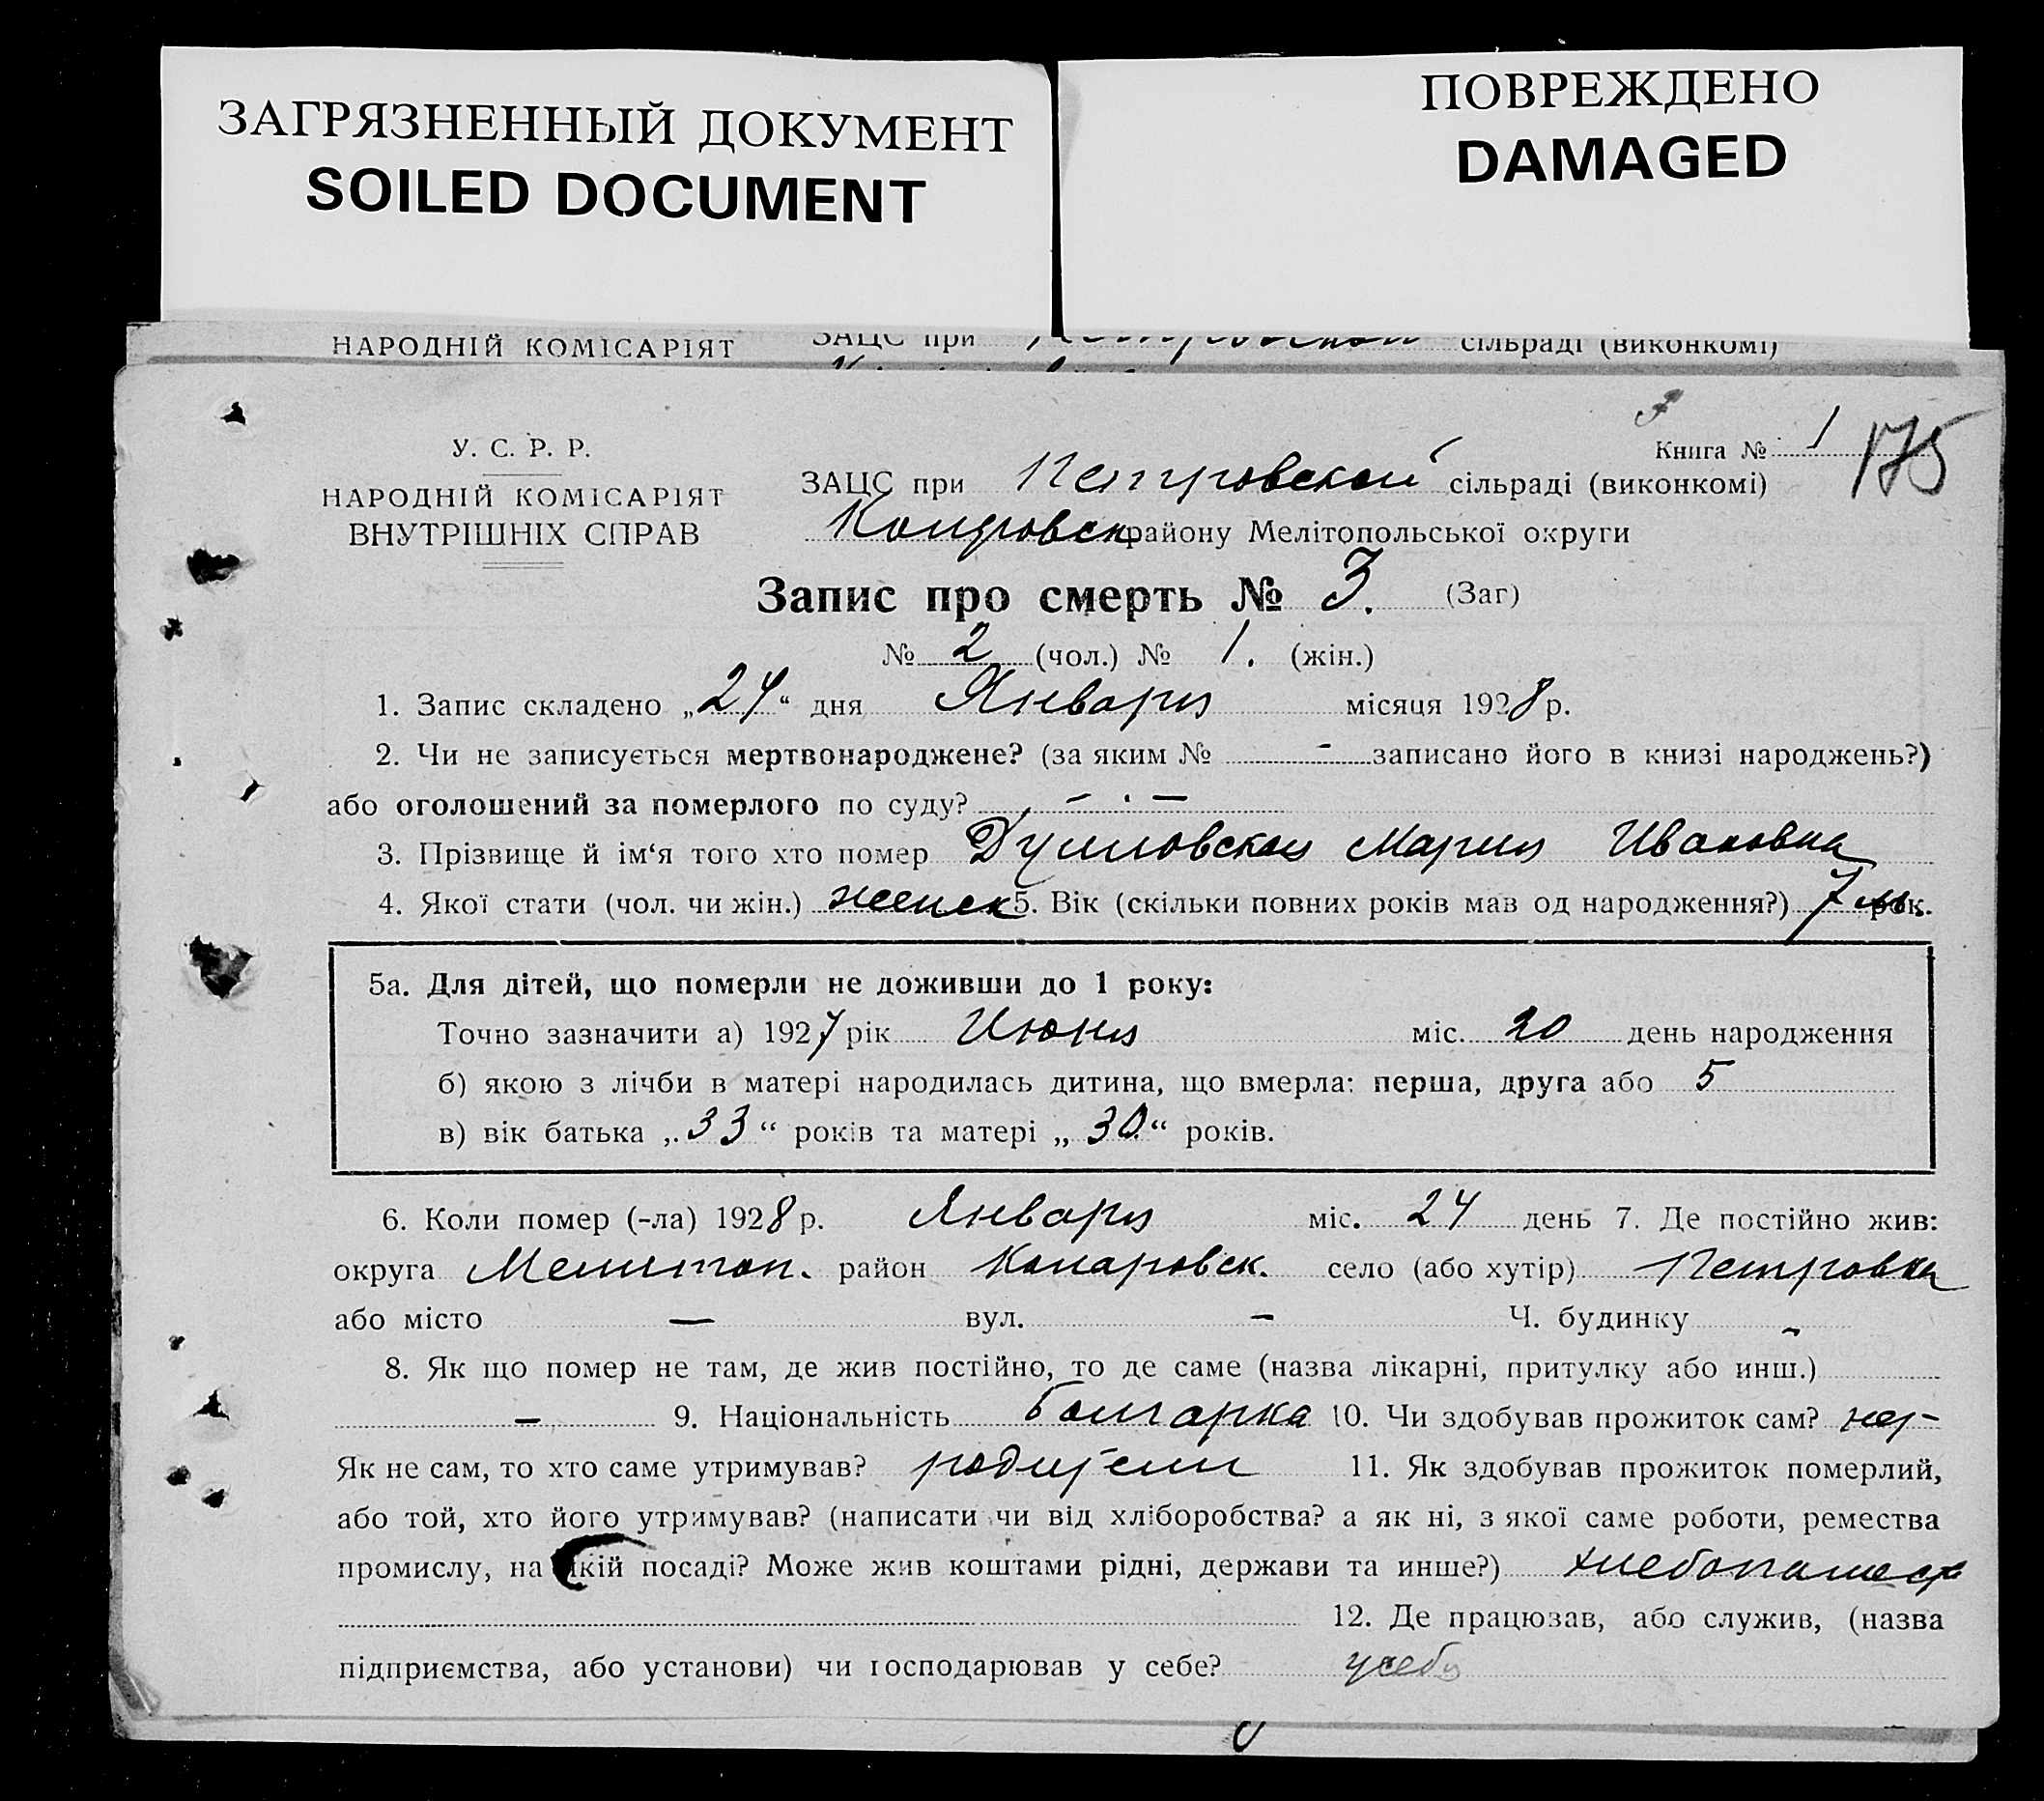 ЗАГРЯЗНЕННЫЙ ДОКУМЕНТ
SOILED DOCUMENT
ПОВРЕЖДЕНО
DAMAGED
НАРОДНІЙ КОМІСАРІЯТ ЗАЦС при Петровской сільраді (виконкомі)
Книга № 1 175
У. С. Р. Р.
НАРОДНІЙ КОМІСАРІЯТ
ВНУТРІШНІХ СПРАВ
ЗАЦС при Петровской сільраді (виконкомі)
району Мелітопольської округи
Запис про смерть № 3. (Заг)
№ 2 (чол.) № 1. (жін.)
1. Запис складено „24“ дня Января місяця 1928 р.
2. Чи не записується мертвонароджене? (за яким № - записано його в книзі народжень?)
або оголошений за померлого по суду? — . —
3. Прізвище й ім‘я того хто помер Мария Ивановна
4. Якої стати (чол. чи жін.) женск 5. Вік (скільки повних років мав од народження?) 7 м. рок.
5а. Для дітей, що померли не доживши до 1 року:
Точно зазначити а) 1927 рік Июня міс. 20 день народження
б) якою з лічби в матері народилась дитина, що вмерла: перша, друга або 5
в) вік батька „33“ років та матері „30“ років.
6. Коли помер (-ла) 1928 р. Января міс. 24 день 7. Де постійно жив:
округа Мелитоп. район Коларовск. село (або хутір) Петровка
або місто — вул. - Ч. будинку -
8. Як що помер не там, де жив постійно, то де саме (назва лікарні, притулку або инш.)
— 9. Національність болгарка 10. Чи здобував прожиток сам? нет
Як не сам, то хто саме утримував? родители 11. Як здобував прожиток померлий,
або той, хто його утримував? (написати чи від хліборобства? а як ні, з якої саме роботи, ремества
промислу, на якій посаді? Може жив коштами рідні, держави та инше?) хлебопашест
12. Де працював, або служив, (назва
підприємства, або установи) чи господарював у себе? у себя